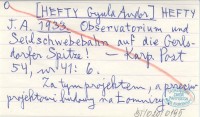 [HEFTY Gyula Andor] HEFTY
J. A. 1933. Observatorium und
Seilschwebebahn auf die Gerls-
dorfer Spitze! – Karp. Post
54, nr 41: 6.
Za tym projektem, a przeciw
projektowi budowy na Łomnicy.